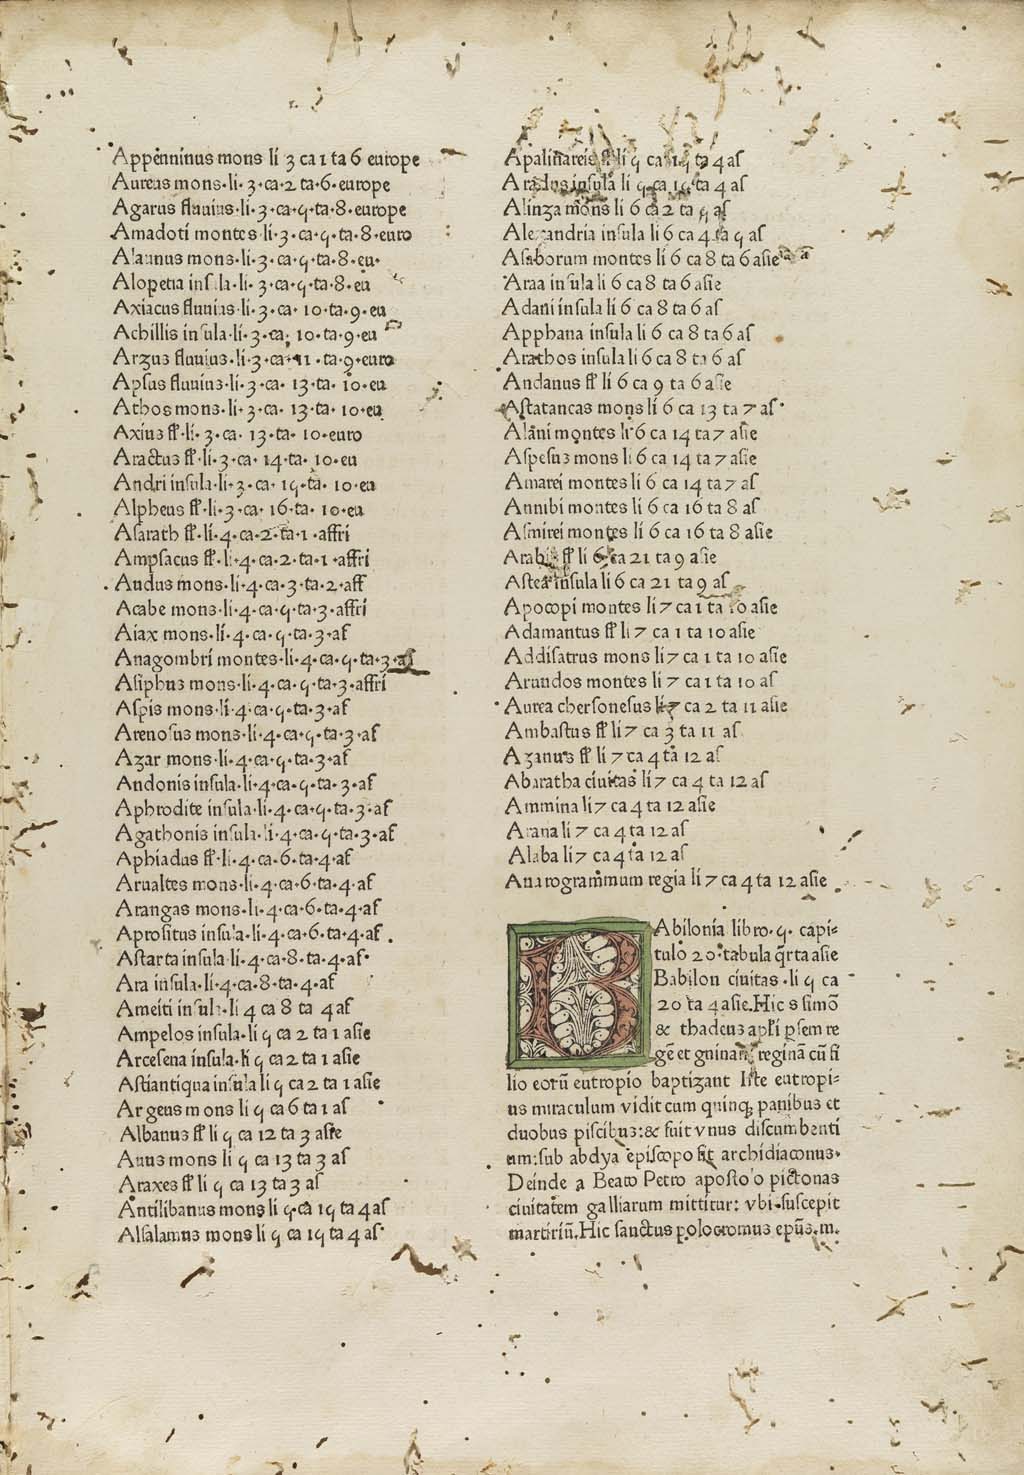 Appēninus mons li 3 ca 1 ta 6 europe
Aureas mons·li·3·ca·2 ta·6·europe
Agarus fluuius·li·3·ca·ꝗ·ta·8·europe
Amadoti montes·li·3·ca·ꝗ·ta·8·euro
Alaunus mons·li·3·ca·ꝗ·ta·8·eu·
Alopetia insula·li·3·ca·ꝗ·ta·8·eu
Axiacus fluuius·li·3·ca·10·ta·9·eu
Achillis insula·li·3·ca·10·ta·9·eu
Arzus fluuius·li·3·ca·11·ta·9·euro
Apsus fluuius·li·3·ca·13·ta·10·eu
Athos mons·li·3·ca·13·ta·10·eu
Axius fl̄·li·3·ca·13·ta·10·euro
Aractus fl̄·li·3·ca·14·ta·10·eu
Andri insula·li·3·ca·1ꝗ·ta·10·eu
Alpheus fl̄·li·3·ca·16·ta·10·eu
Asarath fl̄·li·4·ca·2·ta·1·affri
Ampsacus fl̄·li·4·ca·2·ta·1·affri
Audus mons·li·4·ca·3·ta·2·aff
Acabe mons·li·4·ca·ꝗ·ta·3·affri
Aiax mons·li·4·ca·ꝗ·ta·3·af
Anagombri montes·li·4·ca·ꝗ·ta·3·af
Asiphus mons·li·4·ca·ꝗ·ta·3·affri
Aspis mons·li·4·ca·ꝗ·ta·3·af
Arenosus mons·li·4·ca·ꝗ·ta·3·af
Azar mons·li·4·ca·ꝗ·ta·3·af
Andonis insula·li·4·ca·ꝗ·ta·3·af
Aphrodite insula·li·4·ca·ꝗ·ta·3·af
Agathonis insula·li·4·ca·ꝗ·ta·3·af
Aphiadus fl̄·li·4·ca·6·ta·4·af
Arualtes mons·li·4·ca·6·ta·4·af
Arangas mons·li·4·ca·6·ta·4·af
Aprositus insula·li·4·ca·6·ta·4·af
Astarta insula·li·4·ca·8·ta·4·af·
Ara insula·li·4·ca·8·ta·4·af
Ameiti insula·li 4 ca 8 ta 4 af
Ampelos insula·li ꝗ ca 2 ta 1 asie
Arcesena insula·li ꝗ ca 2 ta 1 asie
Astiantiqua insula li ꝗ ca 2 ta 1 asie
Argeus mons li ꝗ ca 6 ta 1 as
Albanus fl̄ li ꝗ ca 12 ta 3 asie
Auus mons li ꝗ ca 13 ta 3 as
Araxes fl̄ li ꝗ ca 13 ta 3 as
Antilibanus mons li ꝗ ca 1ꝗ ta 4 as
Alsalamus mons li ꝗ ca 1ꝗ ta 4 as
Apalinareis fl̄ li ꝗ ca 1ꝗ ta 4 as
Aradus insula li ꝗ ca 1ꝗ ta 4 as
Alinza mons li 6 ca 2 ta ꝗ as
Alexandria insula li 6 ca 4 ta ꝗ as
Asaborum montes li 6 ca 8 ta 6 asie
Araa insula li 6 ca 8 ta 6 asie
Adani insula li 6 ca 8 ta 6 as
Apphana insula li 6 ca 8 ta 6 as
Arathos insula li 6 ca 8 ta 6 as
Andanus fl̄ li 6 ca 9 ta 6 asie
Astatancas mons li 6 ca 13 ta 7 as
Alani montes li 6 ca 14 ta 7 asie
Aspesus mons li 6 ca 14 ta 7 asie
Amarei montes li 6 ca 14 ta 7 as
Annibi montes li 6 ca 16 ta 8 as
Asmirei montes li 6 ca 16 ta 8 asie
Arabis fl̄ li 6 ca 21 ta 9 asie
Astea insula li 6 ca 21 ta 9 as
Apocopi montes li 7 ca 1 ta 10 asie
Adamantus fl̄ li 7 ca 1 ta 10 asie
Addisatrus mons li 7 ca 1 ta 10 asie
Arundos montes li 7 ca 1 ta 10 as
Aurea chersonesus li 7 ca 2 ta 11 asie
Ambastus fl̄ li 7 ca 3 ta 11 as
Azanus fl̄ li 7 ca 4 ta 12 as
Abaratha ciuitas li 7 ca 4 ta 12 as
Ammina li 7 ca 4 ta 12 asie
Arana li 7 ca 4 ta 12 as
Alaba li 7 ca 4 ta 12 as
Anurogrammum regia li 7 ca 4 ta 12 asie
BAbilonia libro·ꝗ·capi=
tulo 20·tabula q̄rta asie
Babilon ciuitas·li ꝗ ca
20 ta 4 asie. Hic s simō
& thadeus apl̄i psem re
gē et gninam reginā cū fi
lio eorū eutropio baptizant Iste eutropi=
us miraculum vidit cum quinqꝫ panibus et
duobus piscibus:& fuit vnus discumbenti
um:sub abdya episcopo fit archidiaconus·
Deinde a Beato Petro apostolo pictonas
ciuitatem galliarum mittitur: vbi·suscepit
martiriū. Hic sanctus pologromus ep̄us.m.